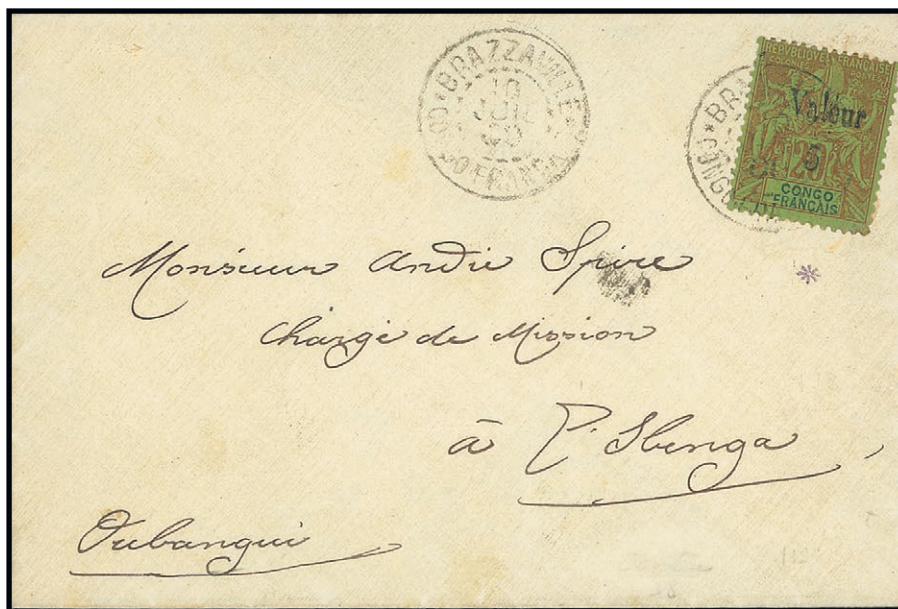 BRAZZAVILLE
10
JUIL
CONGO FRANÇAIS
REPUBLIQUE FRANÇAISE
COLONIES POSTES
Valeur
5
CONGO
FRANÇAIS
Monsieur André Spire
Chargé de Mission
à P. Ibenga
Oubangui